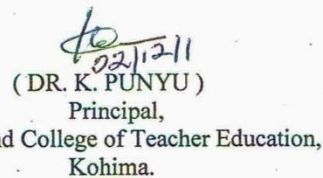 02/12/11
( DR. K. PUNYU )
Principal,
d College of Teacher Education,
Kohima.